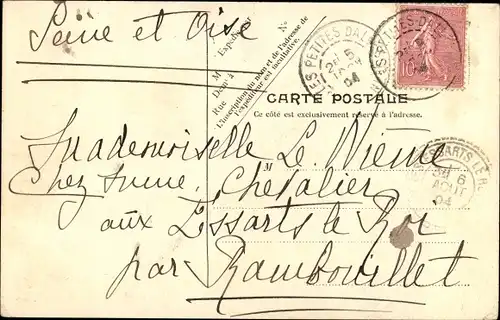 Seine et Oise
N°
M
Expédié par
Demt à
Rue
L'inscription du nom et de l'adresse de
l'expéditeur est facultative.
LES PETITES DALLES
04
LES PETITES DALLES
04
10
CARTE POSTALE
Ce côté est exclusivement réservé à l'adresse.
M
Mademoiselle Le
Chez Mme Chevalier
aux Essarts le Roi
par Rambouillet
ESSARTS LE R
6
AOUT
04